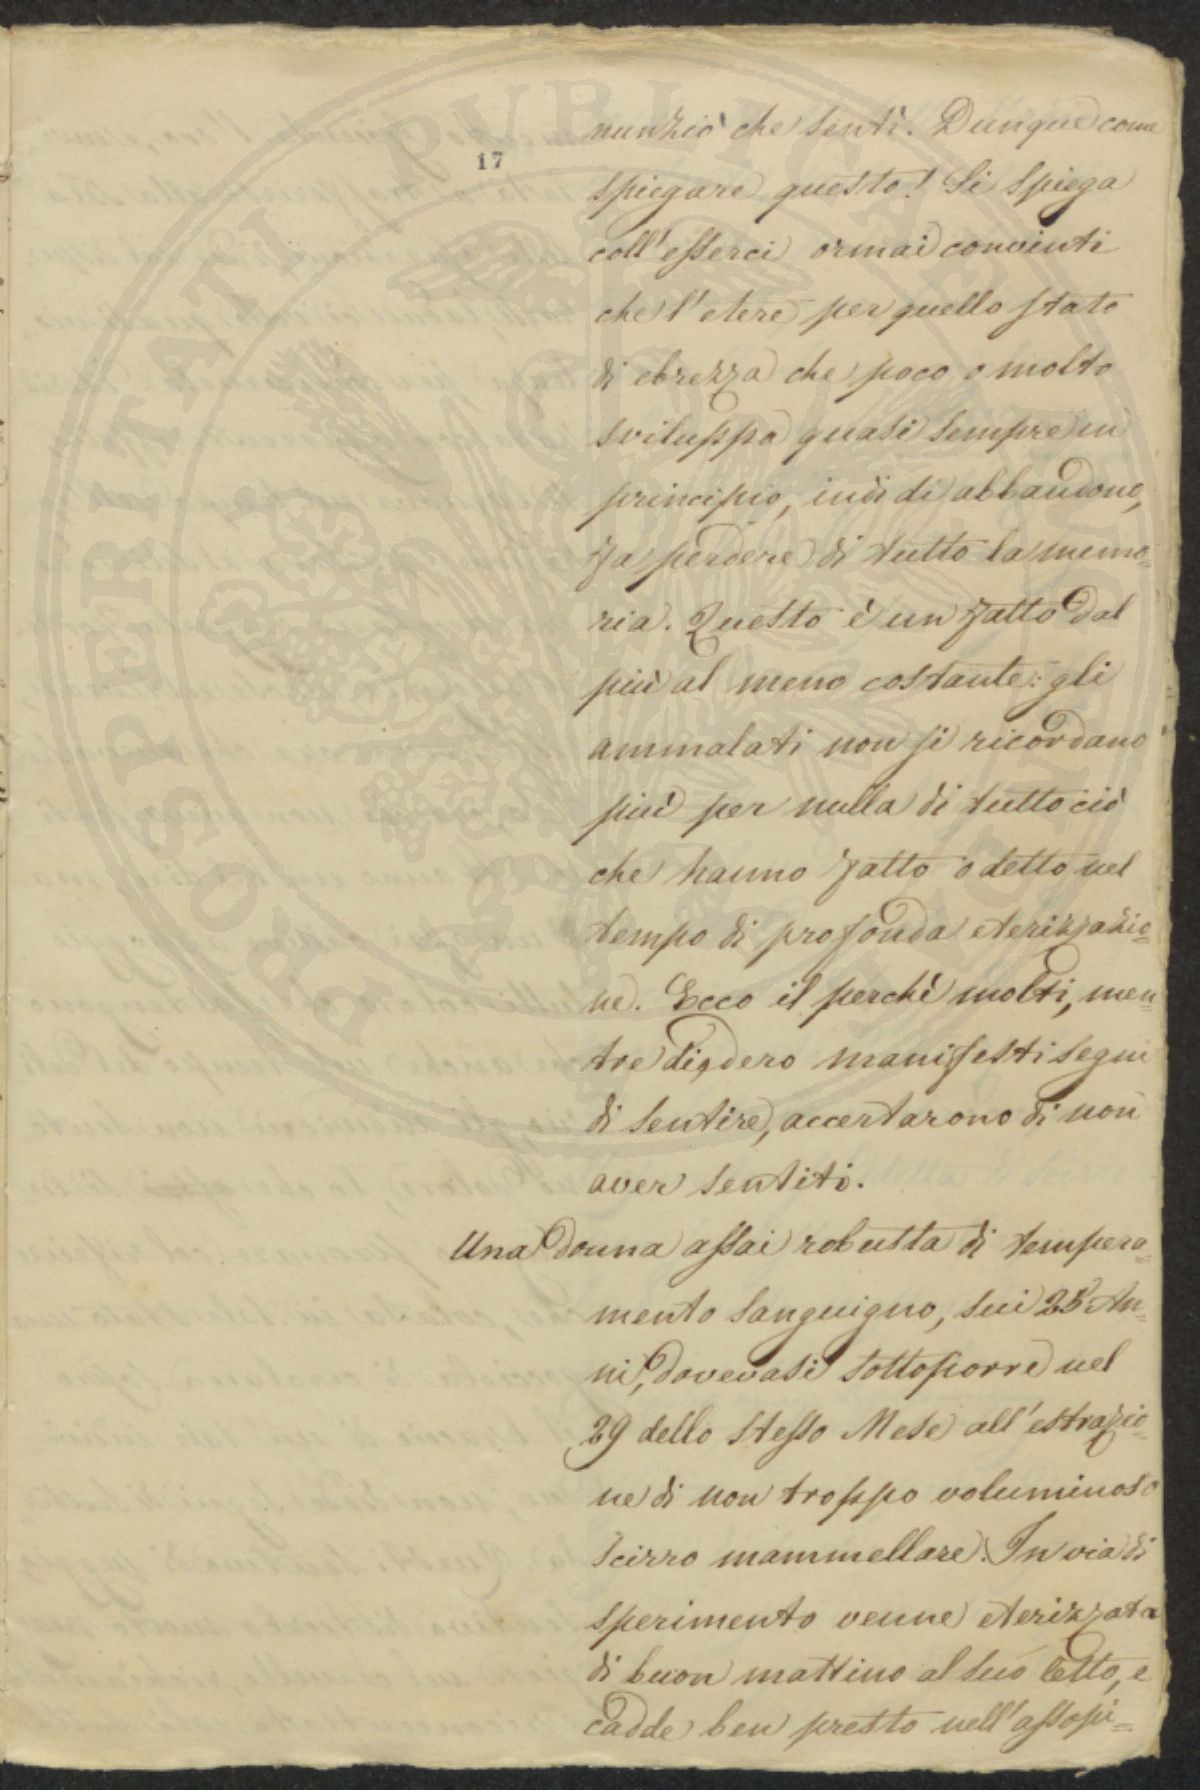 17
nunziò che sentì. Dunque come
spiegare questo! Si spiega
coll'esserci ormai convinti
che l'etere per quello stato
di ebrezza che poco o molto
sviluppa quasi sempre in
principio, indi di abbandono,
fa perdere di tutto la memo=
ria. Questo è un fatto dal
più al meno costante: gli
ammalati non si ricordano
più per nulla di tutto ciò
che hanno fatto o detto nel
tempo di profonda eterizzazio=
ne. Ecco il perchè molti, men=
tre diedero manifesti segni
di sentire, accertarono di non
aver sentito.
Una donna assai robusta di tempera=
mento sanguigno, sui 25 An=
ni, dovevasi sottoporre nel
29 dello stesso Mese all'estrazio=
ne di non troppo voluminoso
scirro mammellare. In via di
sperimento venne eterizzata
di buon mattino al suo letto, e
cadde ben presto nell'assopi=
PROSPERITATI PUBLICAE